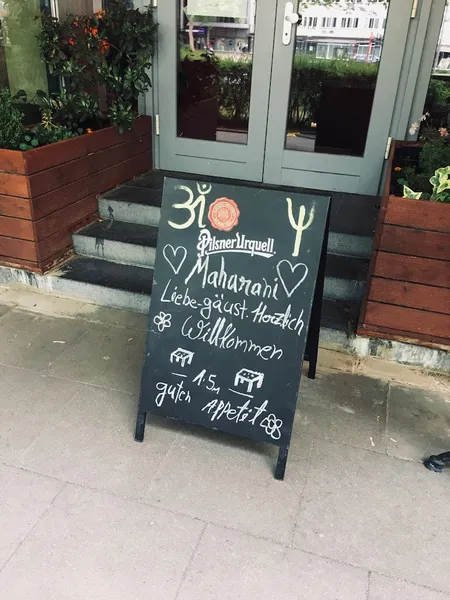 ॐ
Pilsner Urquell
Maharani
Liebe-gäust. Herzlich
Willkommen
1.5m
guten Appetit